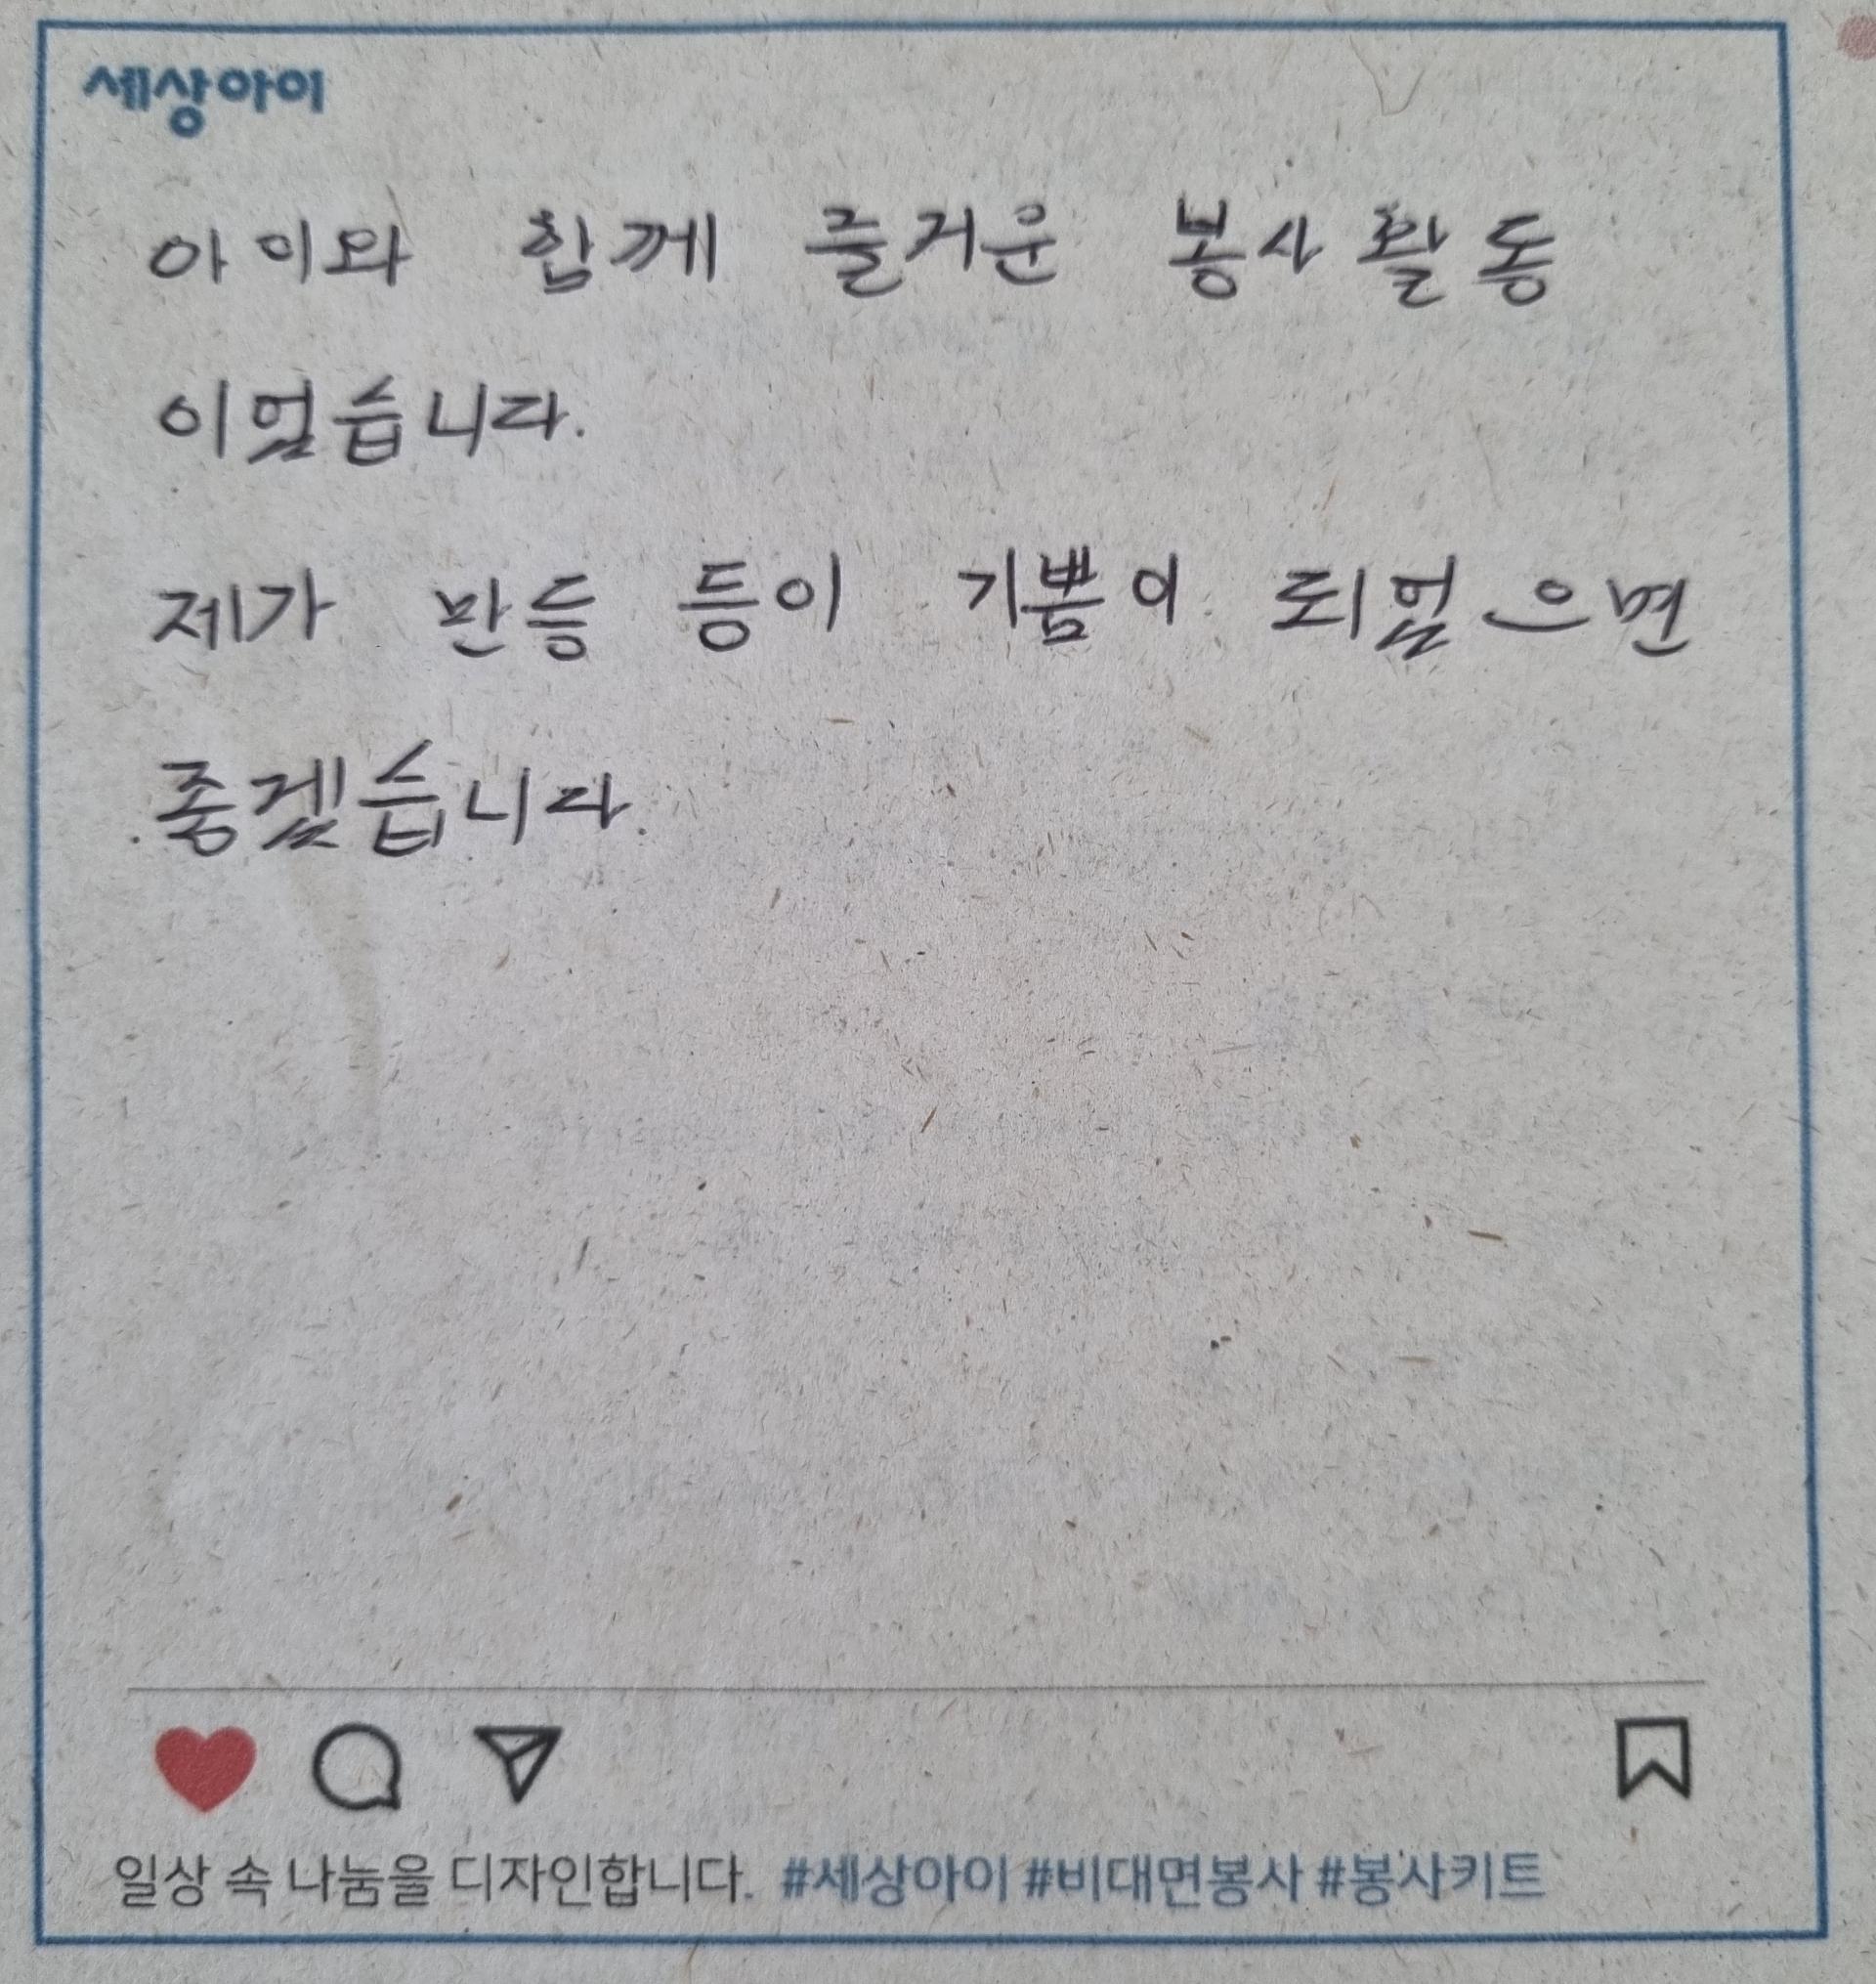 세상아이
아이와 함께 즐거운 봉사활동
이었습니다.
제가 만등 등이 기쁨이 되었으면
좋겠습니다.
일상 속 나눔을 디자인합니다. #세상아이 #비대면봉사 #봉사키트